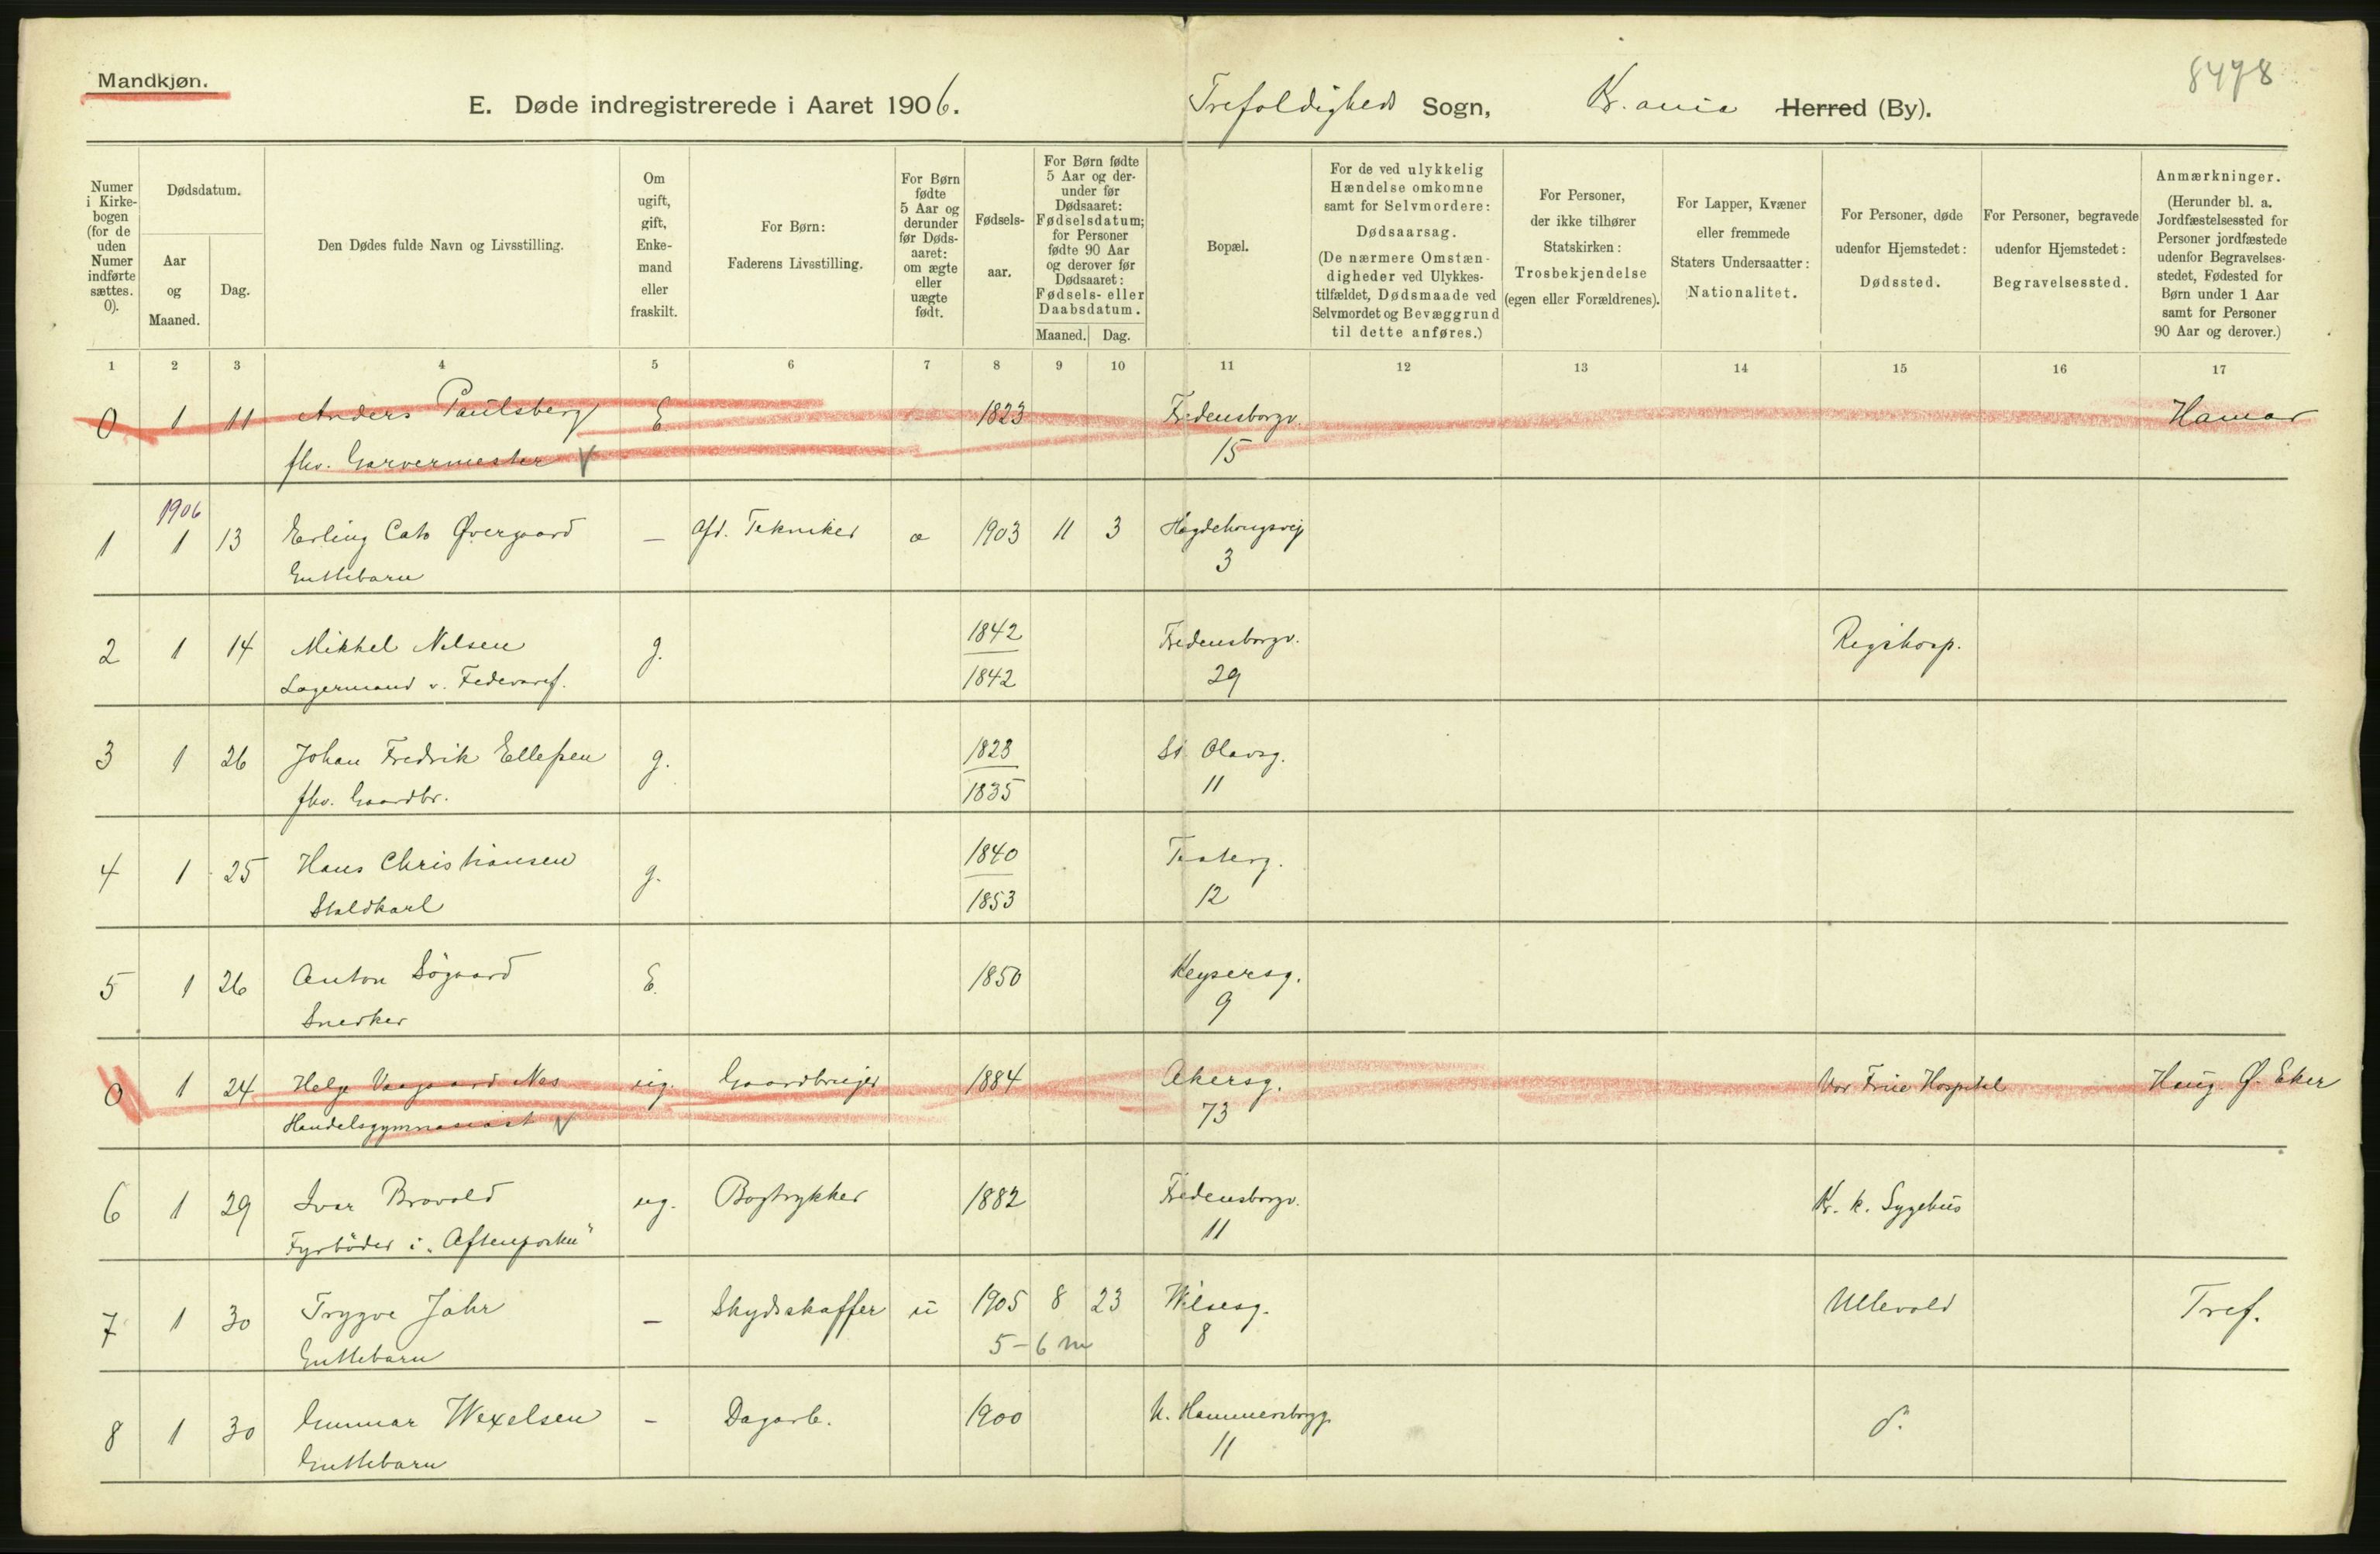 Mandkjøn.
8478
E. Døde indregistrerede i Aaret 1906.
Trefoldigheds Sogn, Kr.ania Herred (By).
Numer i Kirke-bogen (for de uden Numer indførte sættes. 0).
Dødsdatum.
Aar og Maaned.
Dag.
Den Dødes fulde Navn og Livsstilling.
Om ugift, gift, Enke-mand eller fraskilt.
For Børn: Faderens Livsstilling.
For Børn fødte 5 Aar og derunder før Døds-aaret: om ægte eller uægte født.
Fødsels-aar.
For Børn fødte 5 Aar og der-under før Dødsaaret: Fødselsdatum; for Personer fødte 90 Aar og derover før Dødsaaret: Fødsels- eller Daabsdatum.
Maaned. Dag.
Bopæl.
For de ved ulykkelig Hændelse omkomne samt for Selvmordere: Dødsaarsag. (De nærmere Omstæn-digheder ved Ulykkes-tilfældet, Dødsmaade ved Selvmordet og Bevæggrund til dette anføres.)
For Personer, der ikke tilhører Statskirken: Trosbekjendelse (egen eller Forældrenes).
For Lapper, Kvæner eller fremmede Staters Undersaatter: Nationalitet.
For Personer, døde udenfor Hjemstedet: Dødssted.
For Personer, begravede udenfor Hjemstedet: Begravelsessted.
Anmærkninger. (Herunder bl. a. Jordfæstelsessted for Personer jordfæstede udenfor Begravelses-stedet, Fødested for Børn under 1 Aar samt for Personer 90 Aar og derover.)
1 2 3 4 5 6 7 8 9 10 11 12 13 14 15 16 17
0 1 11 Anders Paulsberg E 1823 Fredensborgv. Hamar
fhv. Garvermester 15
1906
1 1 13 Erling Cato Øvergaard — Afd. Tekniker æ 1903 11 3 Hægdehougsvej
Guttebarn 3
2 1 14 Mikkel Nilsen g. 1842 Fredensborgv. Rigshosp.
Lagermand v. Fedevaref. 1842 29
3 1 26 Johan Fredrik Ellefsen g. 1823 St Olavsg.
fhv. Gaardbr. 1835 11
4 1 25 Hans Christiansen g. 1840 Teaterg.
Staldkarl 1853 12
5 1 26 Anton Søgaard E. 1850 Keysersg.
Snedker 9
0 1 24 Helge Vaagaard Nes ug. Gaardbruger 1884 Akersg. Vor Frue Hospital Haug. Ø. Eker
Handelsgymnasiast 73
6 1 29 Ivar Bravold ug. Bogtrykker 1882 Fredensborgv. Kr. k. Sygehus
Fyrbøder i „Aftenposten" 11
7 1 30 Trygve Jahr — Skydsskaffer u 1905 8 23 Wilsesg. Ullevold Tref.
Guttebarn 5-6 m 8
8 1 30 Gunnar Wexelsen - Dagarb. 1900 N. Hammersborgg.
Guttebarn 11